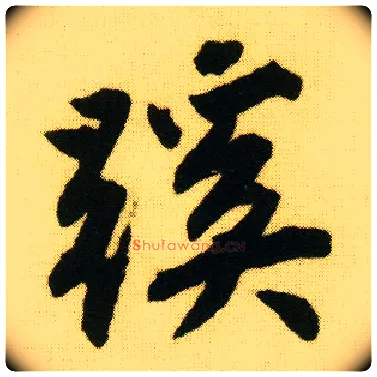 蹊
Shufawang.CN